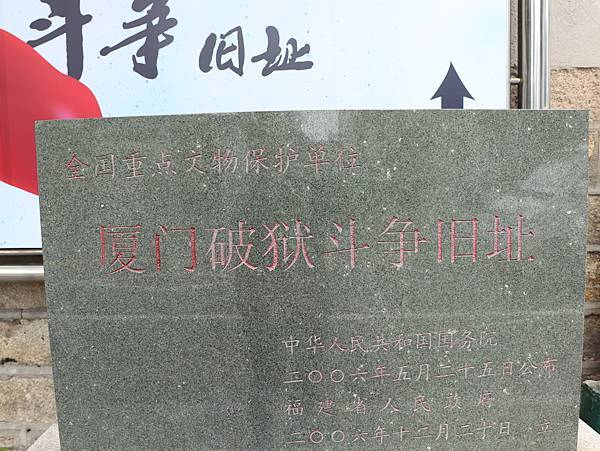 斗争旧址
全国重点文物保护单位
厦门破狱斗争旧址
中华人民共和国国务院
二〇〇六年五月二十五日公布
福建省人民政府
二〇〇六年十二月二十日 立